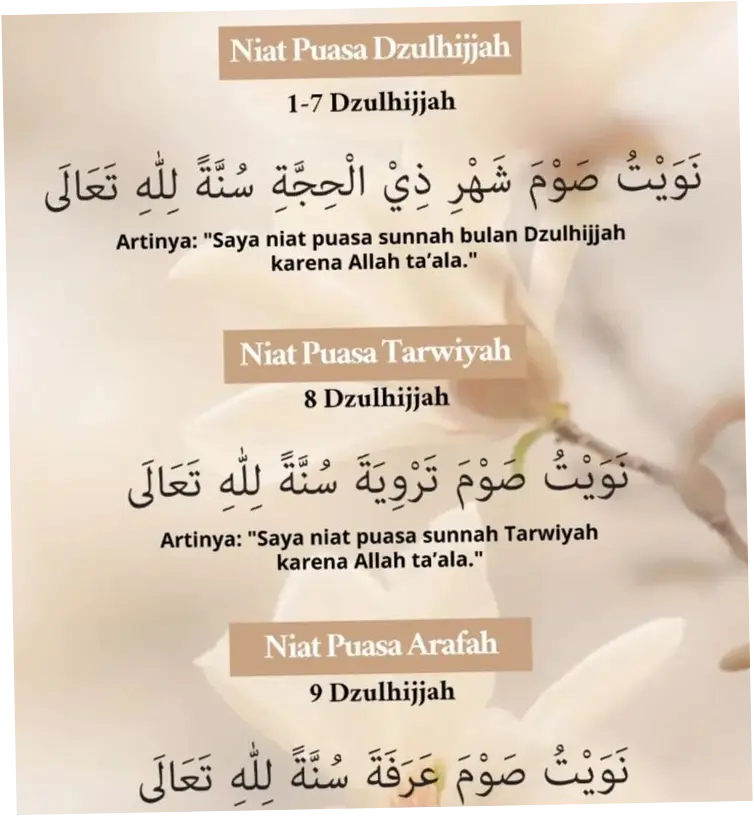 Niat Puasa Dzulhijjah
1-7 Dzulhijjah
نَوَيْتُ صَوْمَ شَهْرِ ذِيْ الْحِجَّةِ سُنَّةً لِلّٰهِ تَعَالَى
Artinya: "Saya niat puasa sunnah bulan Dzulhijjah
karena Allah ta’ala."
Niat Puasa Tarwiyah
8 Dzulhijjah
نَوَيْتُ صَوْمَ تَرْوِيَةَ سُنَّةً لِلّٰهِ تَعَالَى
Artinya: "Saya niat puasa sunnah Tarwiyah
karena Allah ta’ala."
Niat Puasa Arafah
9 Dzulhijjah
نَوَيْتُ صَوْمَ عَرَفَةَ سُنَّةً لِلّٰهِ تَعَالَى